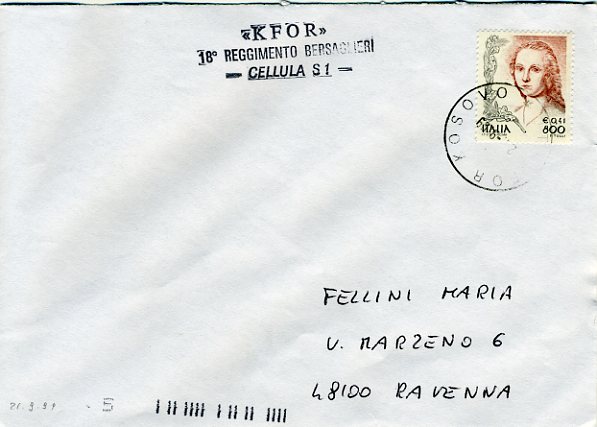 «KFOR»
18° REGGIMENTO BERSAGLIERI
— CELLULA S1 —
KOSOVO
€ 0,41
ITALIA 800
FELLINI MARIA
V. MARZENO 6
48100 RAVENNA
5